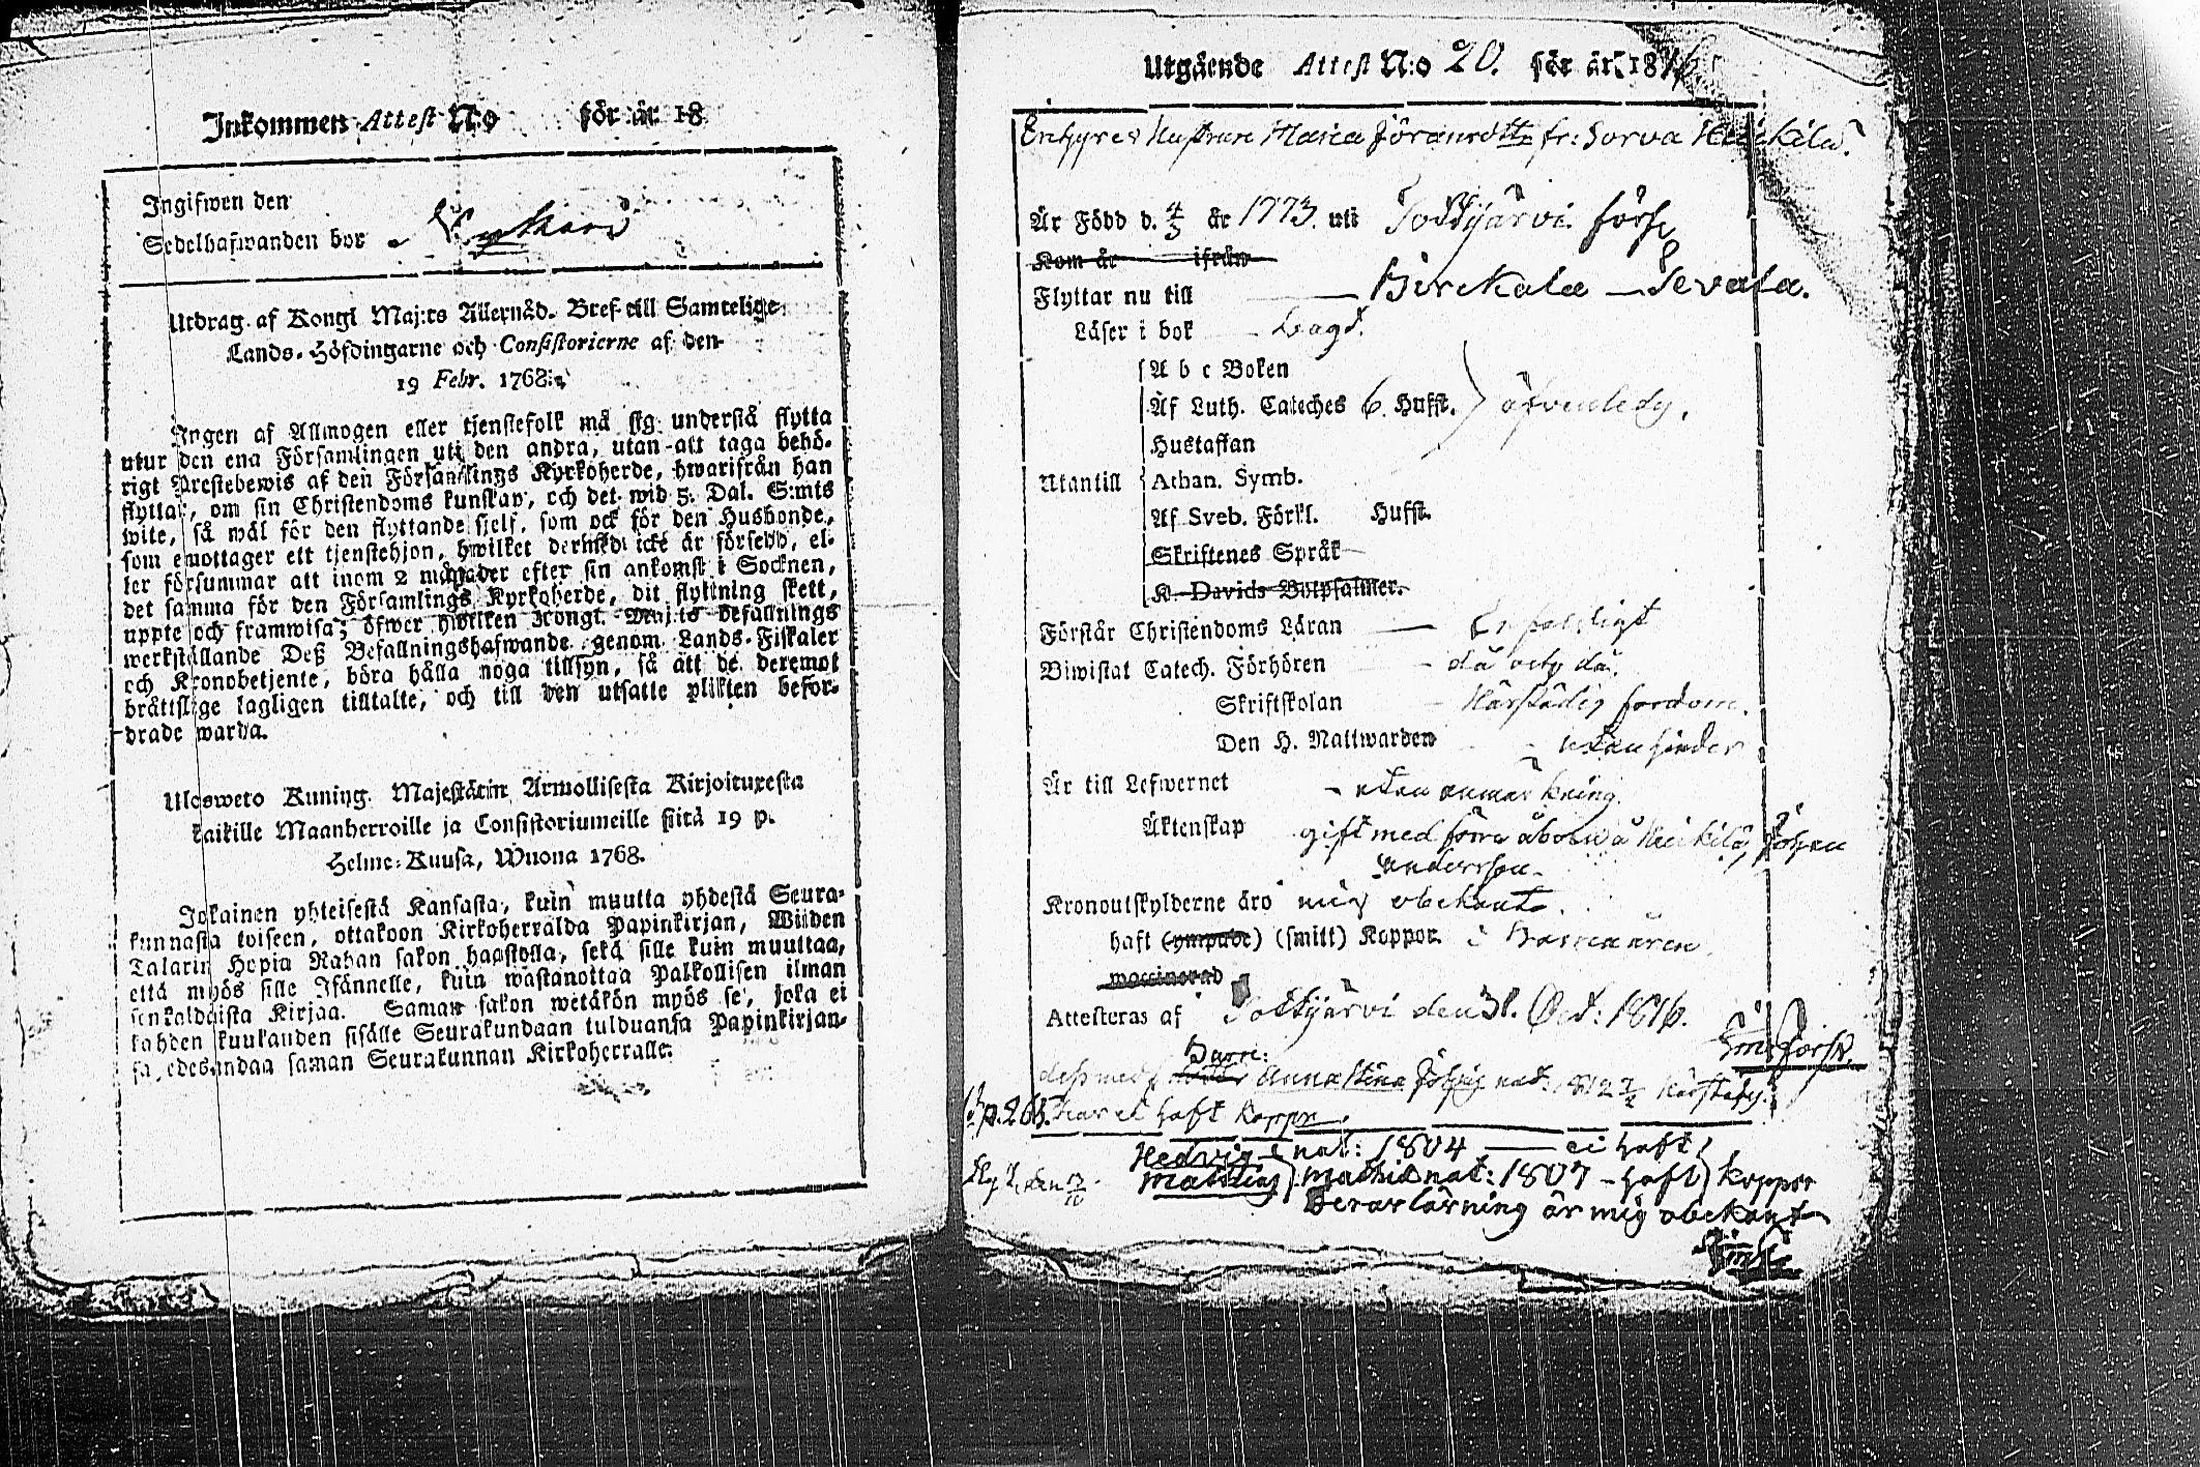 Inkommen Attest N:o för år 18
Ingifwen den
Sedelhafwanden bor
Utdrag af Kongl Maj:ts Allernåd. Bref till Samtelige
Lands-Höfdingarne och Consistorierne af den
19 Febr. 1768.
Ingen af Allmogen eller tjenstefolk må sig understå flytta
utur den ena Församlingen uti den andra, utan att taga behö-
rigt Prestebewis af den Församlings Kyrkoherde, hwarifrån han
flyttar, om sin Christendoms kunskap, och det wid 5. Dal. S:mts
wite, så wäl för den flyttande sjelf, som ock för den Husbonde,
som emottager ett tjenstehjon, hwilket dermed icke är försedd, el-
ler försummar att inom 2 månader efter sin ankomst i Socknen,
det samma för den Församlings Kyrkoherde, dit flyttning skett,
uppte och framwisa; öfwer hwilken Kongl. Maj:ts befallnings
werkställande Deß Befallningshafwande genom Lands-Fiskaler
och Kronobetjente, böra hålla noga tillsyn, så att de deremot
bråttslige lagligen tilltalte, och till den utsatte plikten befor-
drade warda.
Ulosweto Kuning. Majestätin Armollisesta Kirjoituxesta
kaikille Maanherroille ja Consistoriumeille siitä 19 p.
Helme-Kuusa, Wuona 1768.
Jokainen yhteisestä Kansasta, kuin muutta yhdestä Seura-
kunnasta toiseen, ottakoon Kirkoherralda Papinkirjan, Wiiden
Talarin Hopia Rahan sakon haastolla, sekä sille kuin muuttaa,
että myös sille Isännelle, kuin wastanottaa Palkollisen ilman
senkaldaista Kirjaa. Saman sakon wetäkön myös se, joka ei
kahden kuukauden sisälle Seurakundaan tulduansa Papinkirjan-
sa edesandaa saman Seurakunnan Kirkoherralle.
Utgående Attest N:o 20. för år 1816
Hustrun Maria Göransdotter fr: Sorva Heikkilä
Är Född d. 4/3 år 1773. uti Tottijärvi förs
Kom år ifrån
Flyttar nu till Birckala – Sevala.
Läser i bok – svagt.
A b c Boken
Af Luth. Cateches 6. Hufst. ) äfvenledes.
Hustaflan
Utantill Athan. Symb.
Af Sveb. Förkl. Hufst.
Skriftenes Språk
K. Davids Botpsalmer.
Förstår Christendoms Läran – Enfaldigt
Biwistat Catech. Förhören – då och då.
Skriftskolan – Härstädes fordom.
Den H. Nattwarden – utan hinder
Är till Lefwernet – utan anmärkning.
Äktenskap gift med förra åbon å Heikkilä, Johan
Andersson.
Kronoutskylderne äro mig obekante.
haft (ympade) (smitt) Koppor i Barnaåren
waccinerad
Attesteras af Tottijärvi den 31. Oct: 1816.
Barn:
Anna Stina nat: 1812 7/2 Härstädes.
p. 265. har ei haft koppor
Hedvig nat: 1804 — ei haft
Mathias nat: 1807 – haft ) koppor
Deras lärning är mig obekant